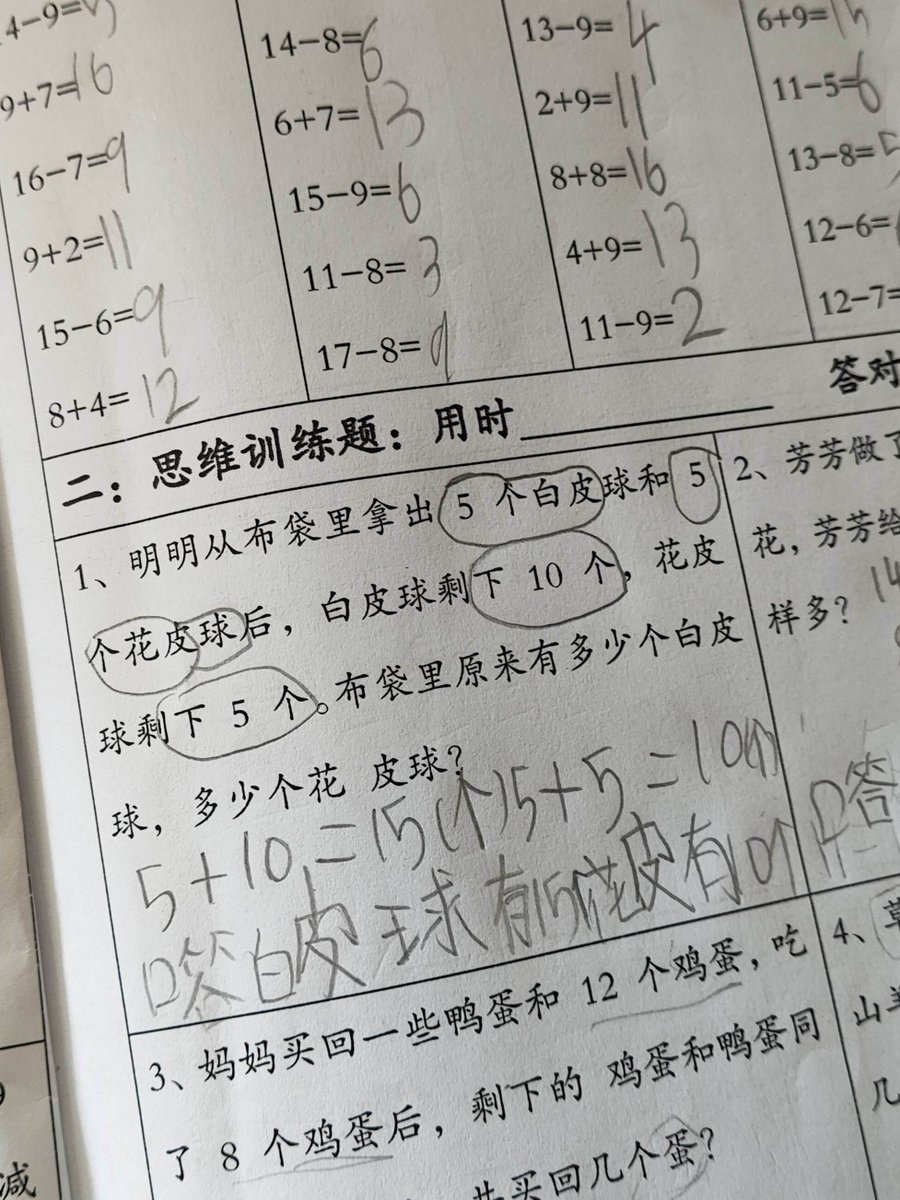 14-9=5
9+7=16
16-7=9
9+2=11
15-6=9
8+4=12
14-8=6
6+7=13
15-9=6
11-8=3
17-8=9
13-9=4
2+9=11
8+8=16
4+9=13
11-9=2
6+9=15
11-5=6
13-8=5
12-6=
12-7=
答对
二：思维训练题：用时
1、明明从布袋里拿出 5 个白皮球和 5
个花皮球后，白皮球剩下 10 个，花皮
球剩下 5 个。布袋里原来有多少个白皮
球，多少个花 皮球？
5+10=15(个)5+5=10(个)
口答白皮球有15个花皮有10个
2、芳芳做了
花，芳芳给
样多？
14
口答
3、妈妈买回一些鸭蛋和 12 个鸡蛋，吃
了 8 个鸡蛋后，剩下的 鸡蛋和鸭蛋同
共买回几个蛋？
4、草
山羊
几
减